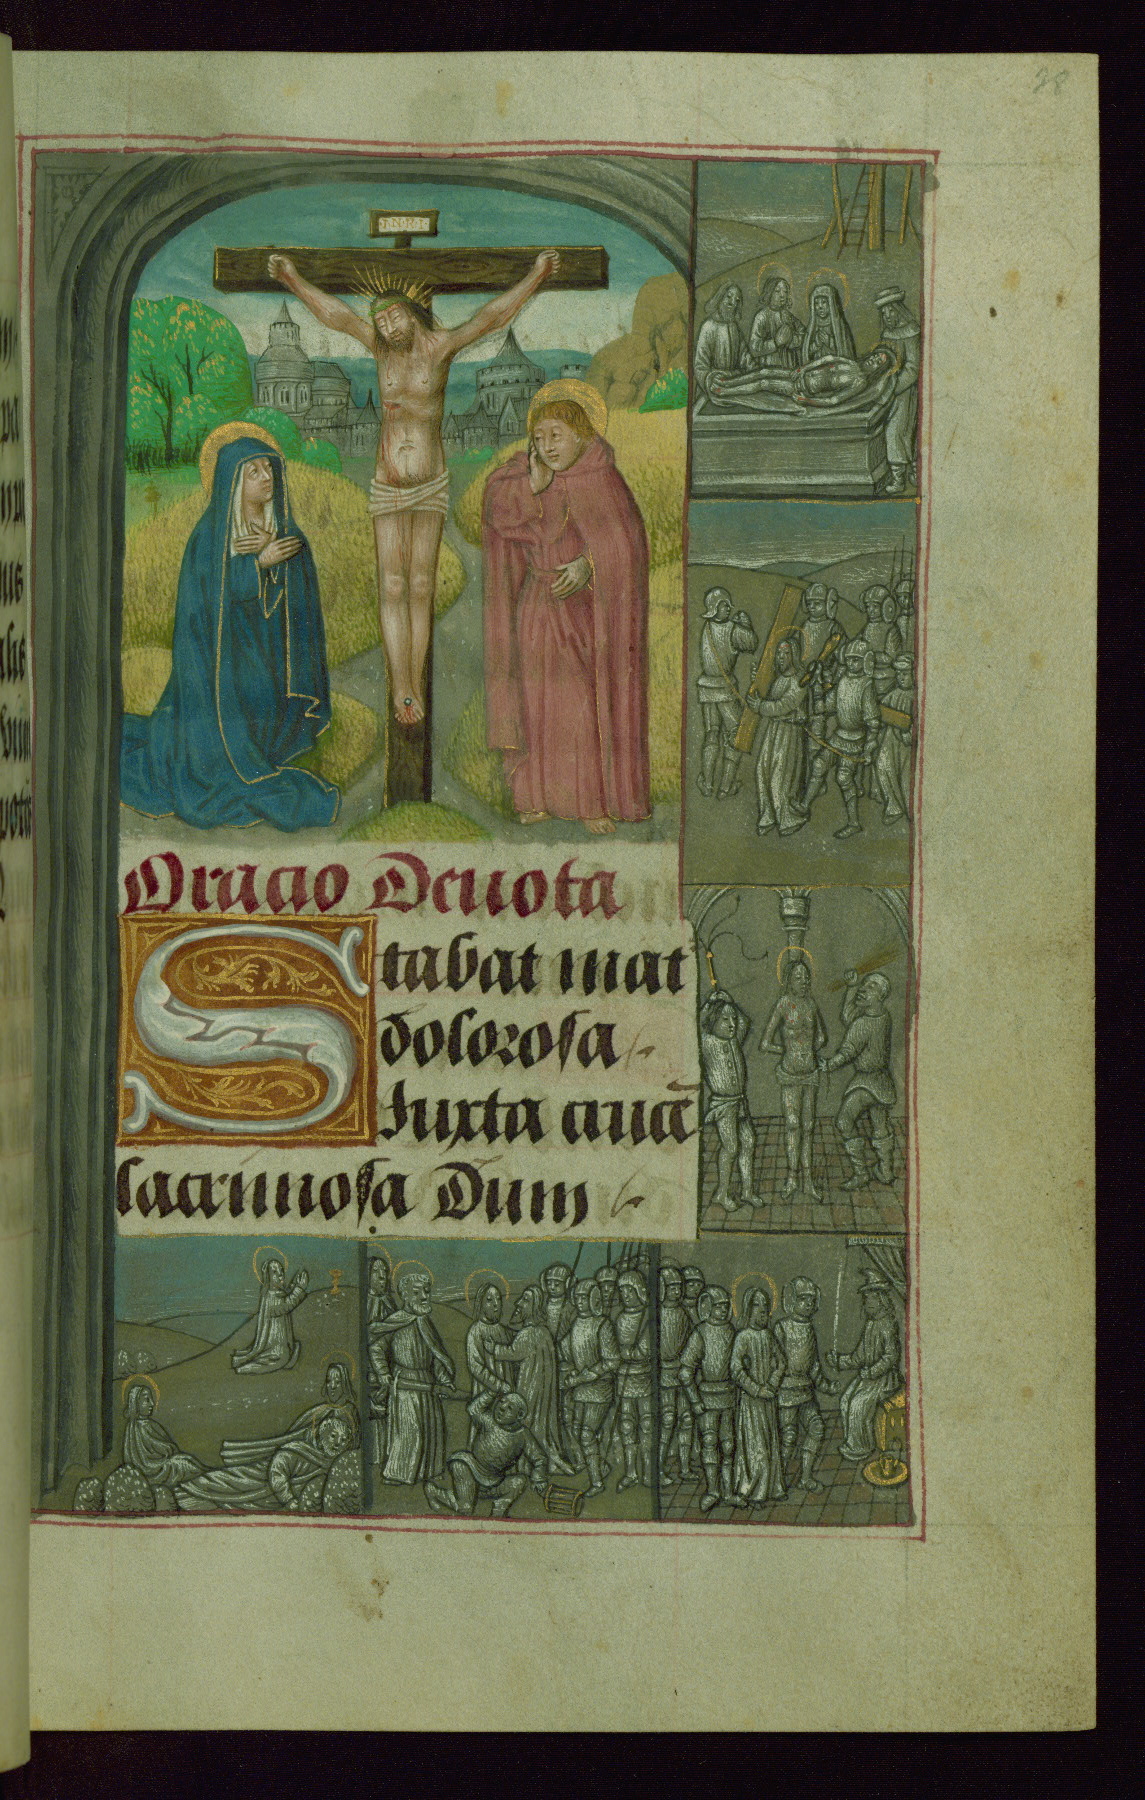 38
INRI
Oracio Deuota
Stabat mat
dolorosa
Iuxta crucē
lacrimosa Dum